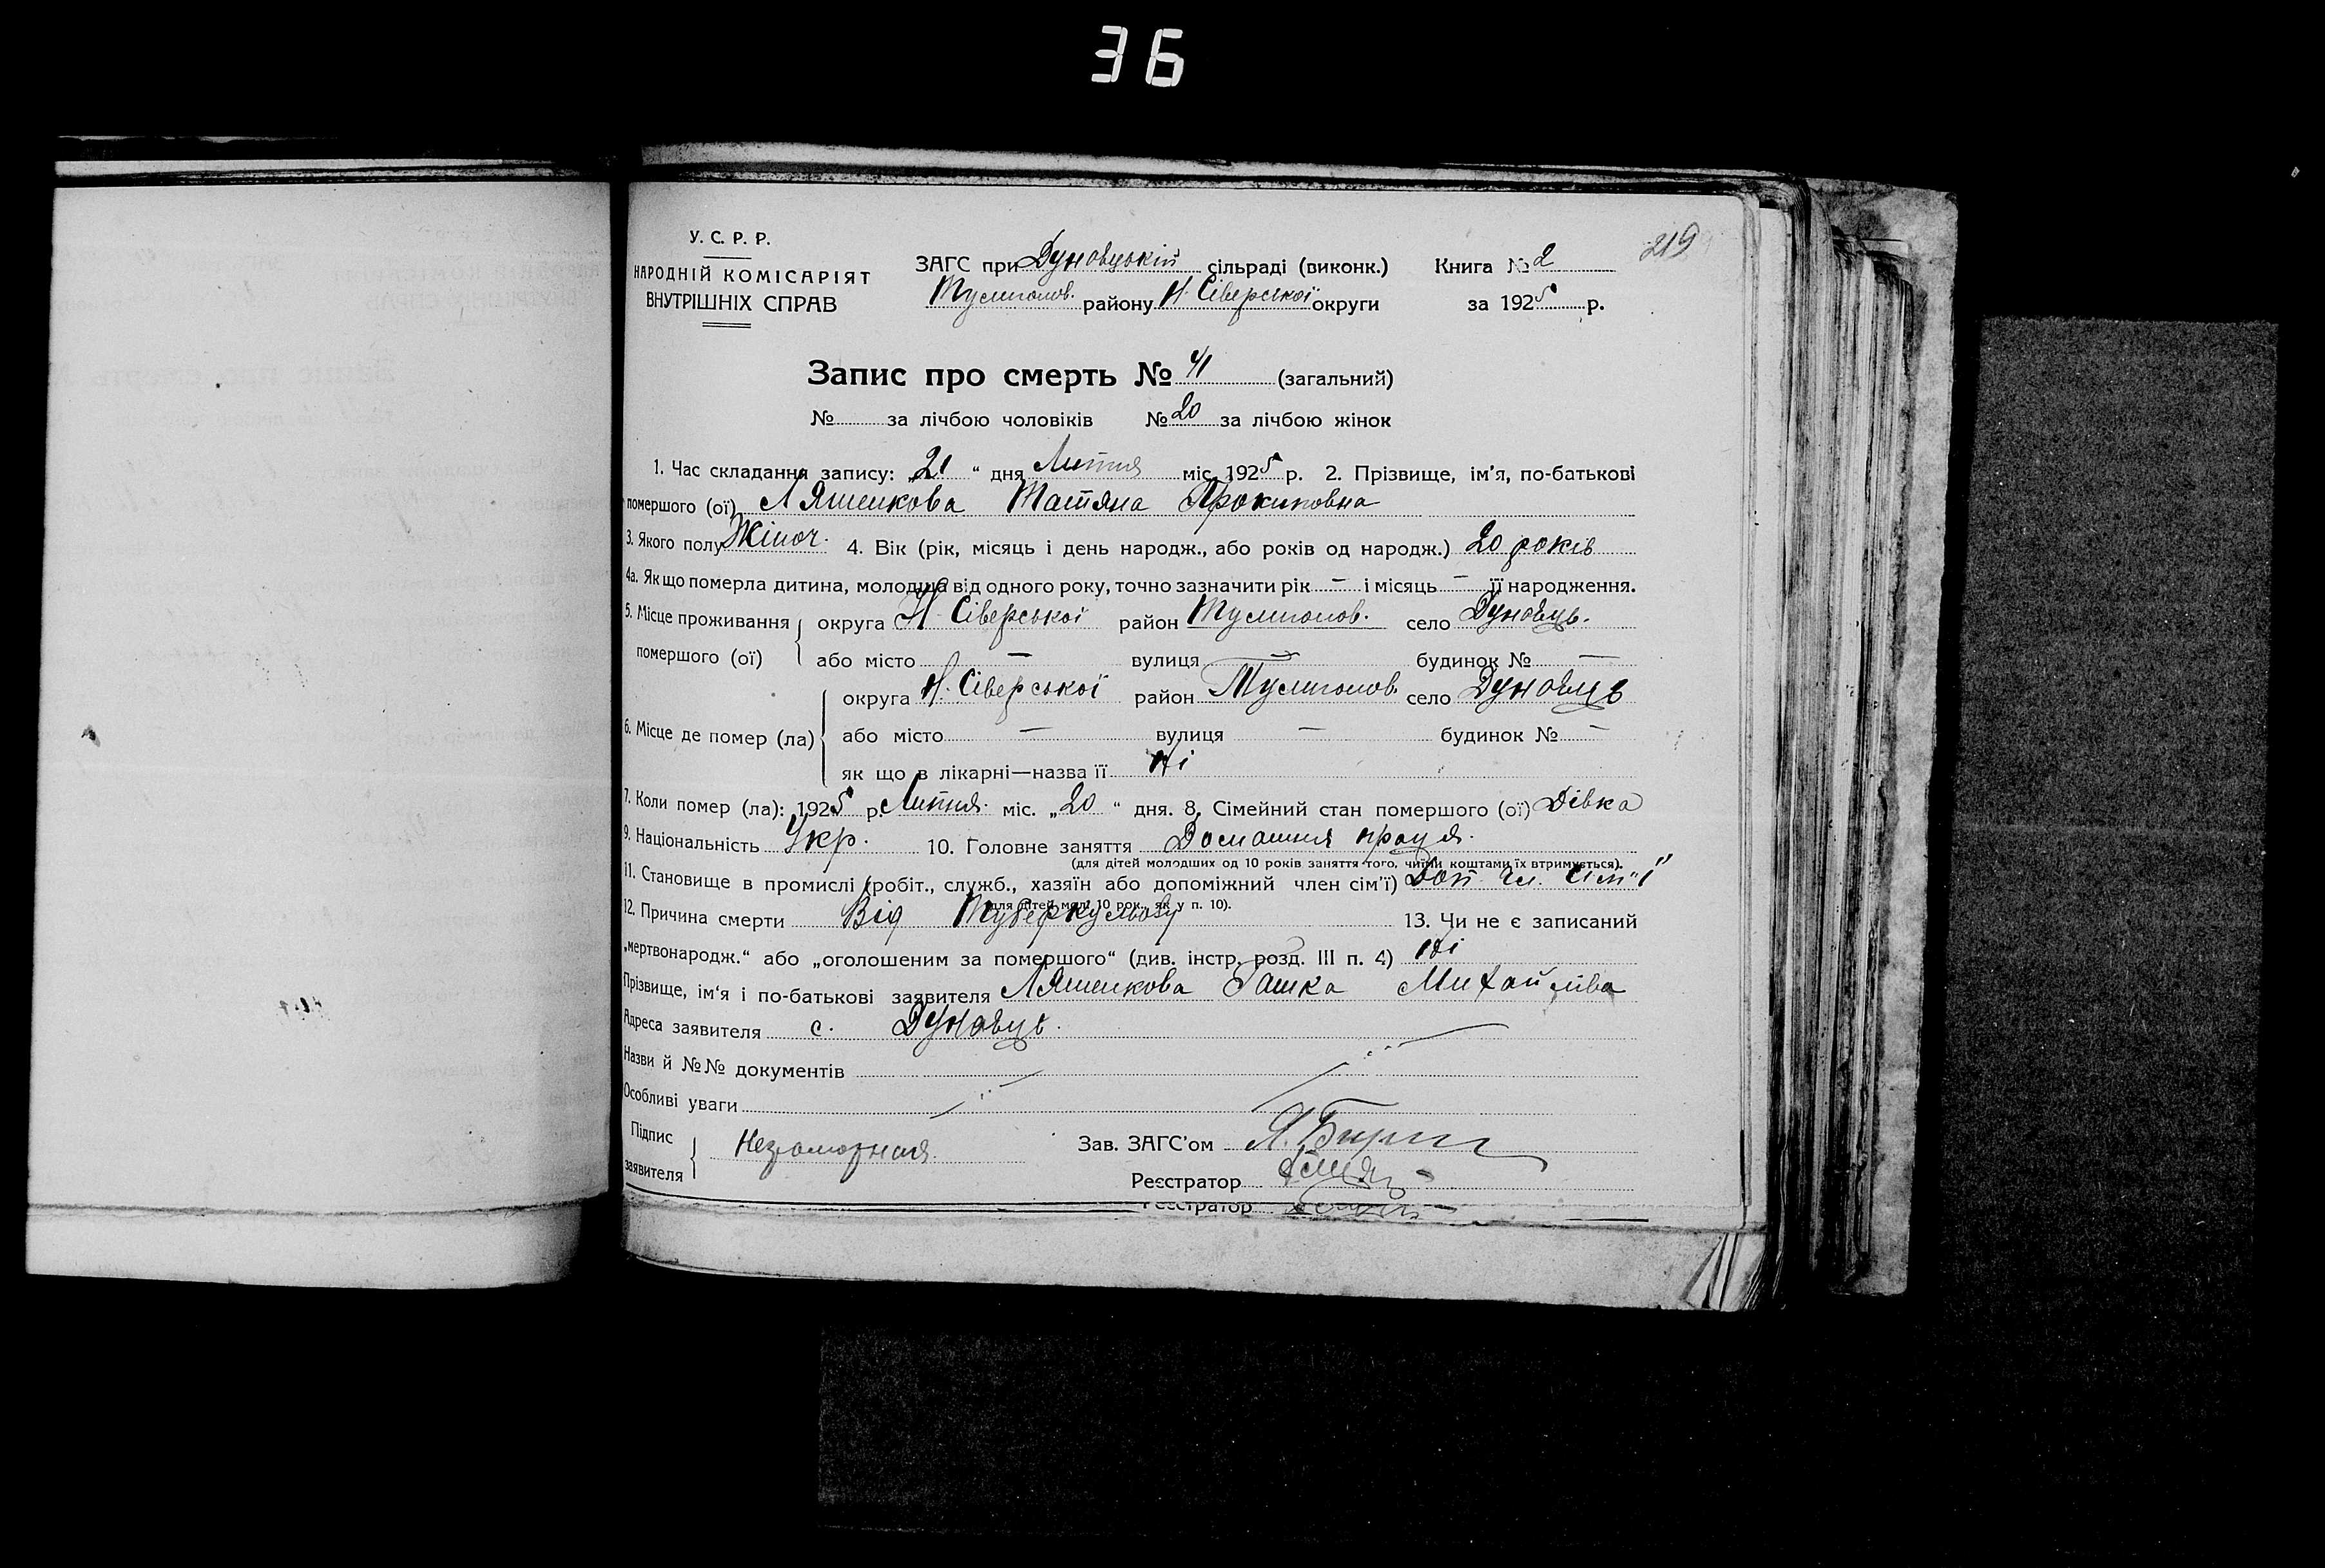 36
219
У. С. Р. Р.
НАРОДНІЙ КОМІСАРІЯТ
ВНУТРІШНІХ СПРАВ
ЗАГС при Дуновуцькій сільраді (виконк.) Книга № 2
Тулиголов. району Н. Сіверської округи за 1925 р.
Запис про смерть № 41 (загальний)
№ за лічбою чоловіків № 20 за лічбою жінок
1. Час складання запису: „21“ дня Липня міс. 1925 р. 2. Прізвище, ім'я, по-батькові
помершого (ої) Ляшенкова Матяна Прокиповна
3. Якого полу Жіноч. 4. Вік (рік, місяць і день народж., або років од народж.) 20 років
4а. Як що померла дитина, молодша від одного року, точно зазначити рік — і місяць — її народження.
5. Місце проживання округа Н. Сіверської район Тулиголов. село
помершого (ої) або місто — вулиця — будинок № —
округа Н. Сіверської район Тулиголов. село
6. Місце де помер (ла) або місто — вулиця — будинок № —
як що в лікарні—назва її Ні
7. Коли помер (ла): 1925 р. Липня міс. „20“ дня. 8. Сімейний стан помершого (ої) Дівка
9. Національність Укр. 10. Головне заняття Домашня праця.
(для дітей молодших од 10 років заняття того, чиїми коштами їх втримується).
11. Становище в промислі (робіт., служб., хазяїн або допоміжний член сім'ї) Доп. чл. сім"ї
(для дітей мол. 10 рок., як у п. 10).
12. Причина смерти Від Туберкульозу 13. Чи не є записаний
„мертвонародж.“ або „оголошеним за помершого“ (див. інстр. розд. III п. 4) Ні
Прізвище, ім'я і по-батькові заявителя Ляшенкова Гашка Михайлівна
Адреса заявителя с.
Назви й №№ документів
Особливі уваги
Підпис
заявителя Незрамотная
Зав. ЗАГС'ом
Реєстратор
Реєстратор